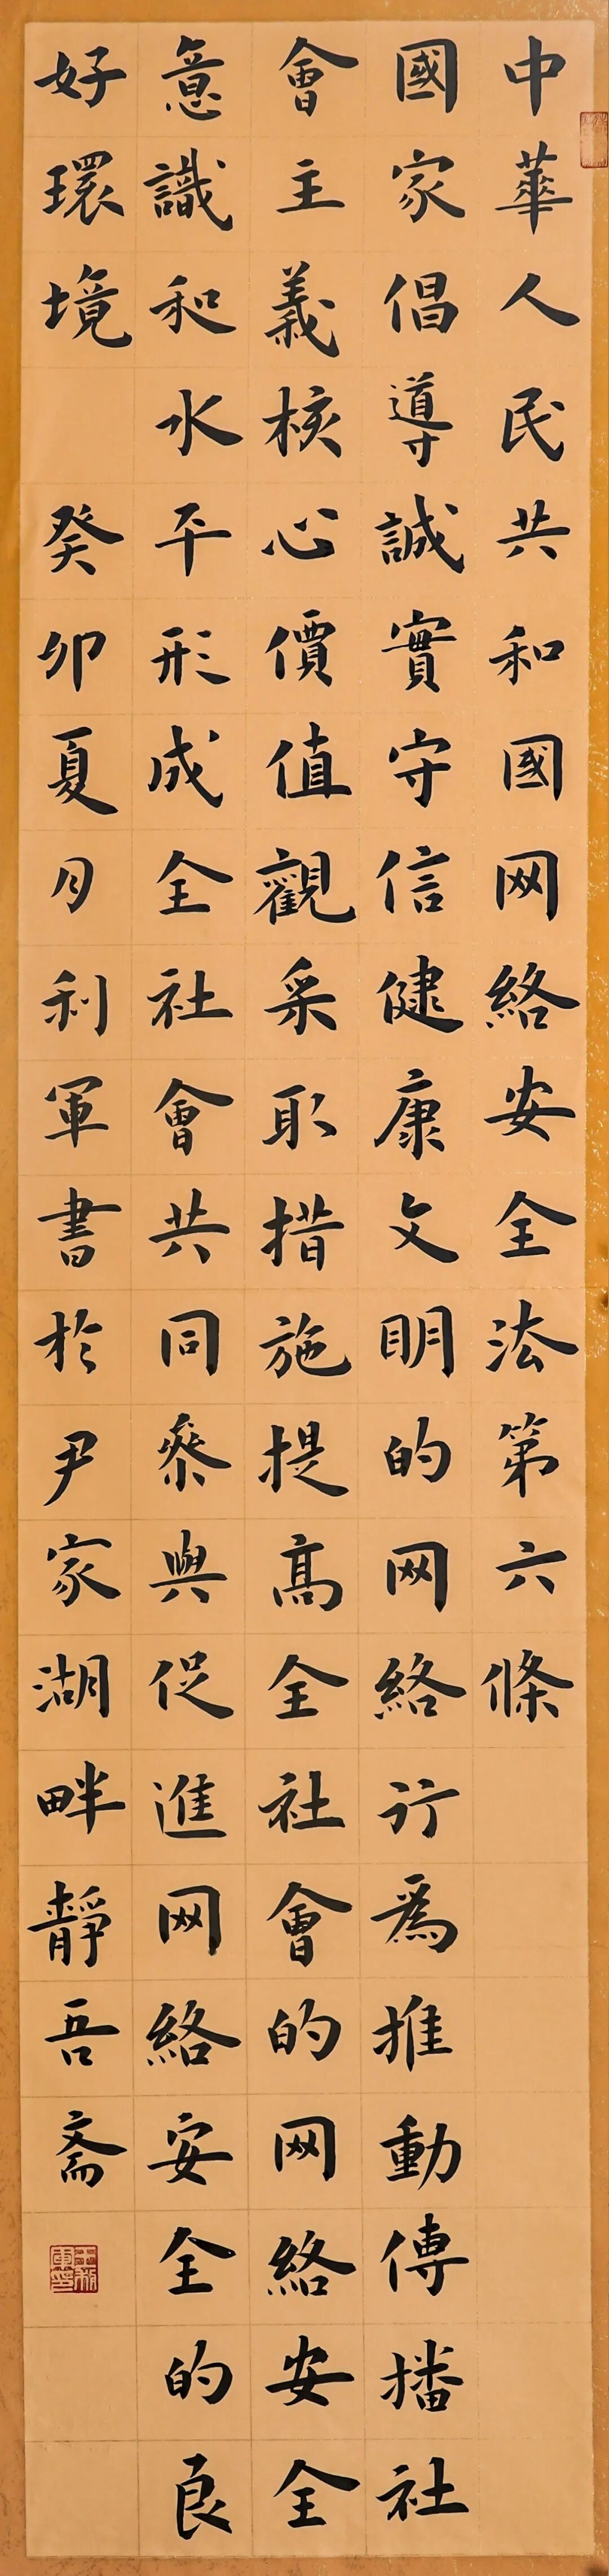 中華人民共和國网絡安全法第六條
國家倡導誠實守信健康文明的网絡行爲推動傳播社
會主義核心價值觀采取措施提高全社會的网絡安全
意識和水平形成全社會共同參與促進网絡安全的良
好環境 癸卯夏月利軍書於尹家湖畔靜吾斋